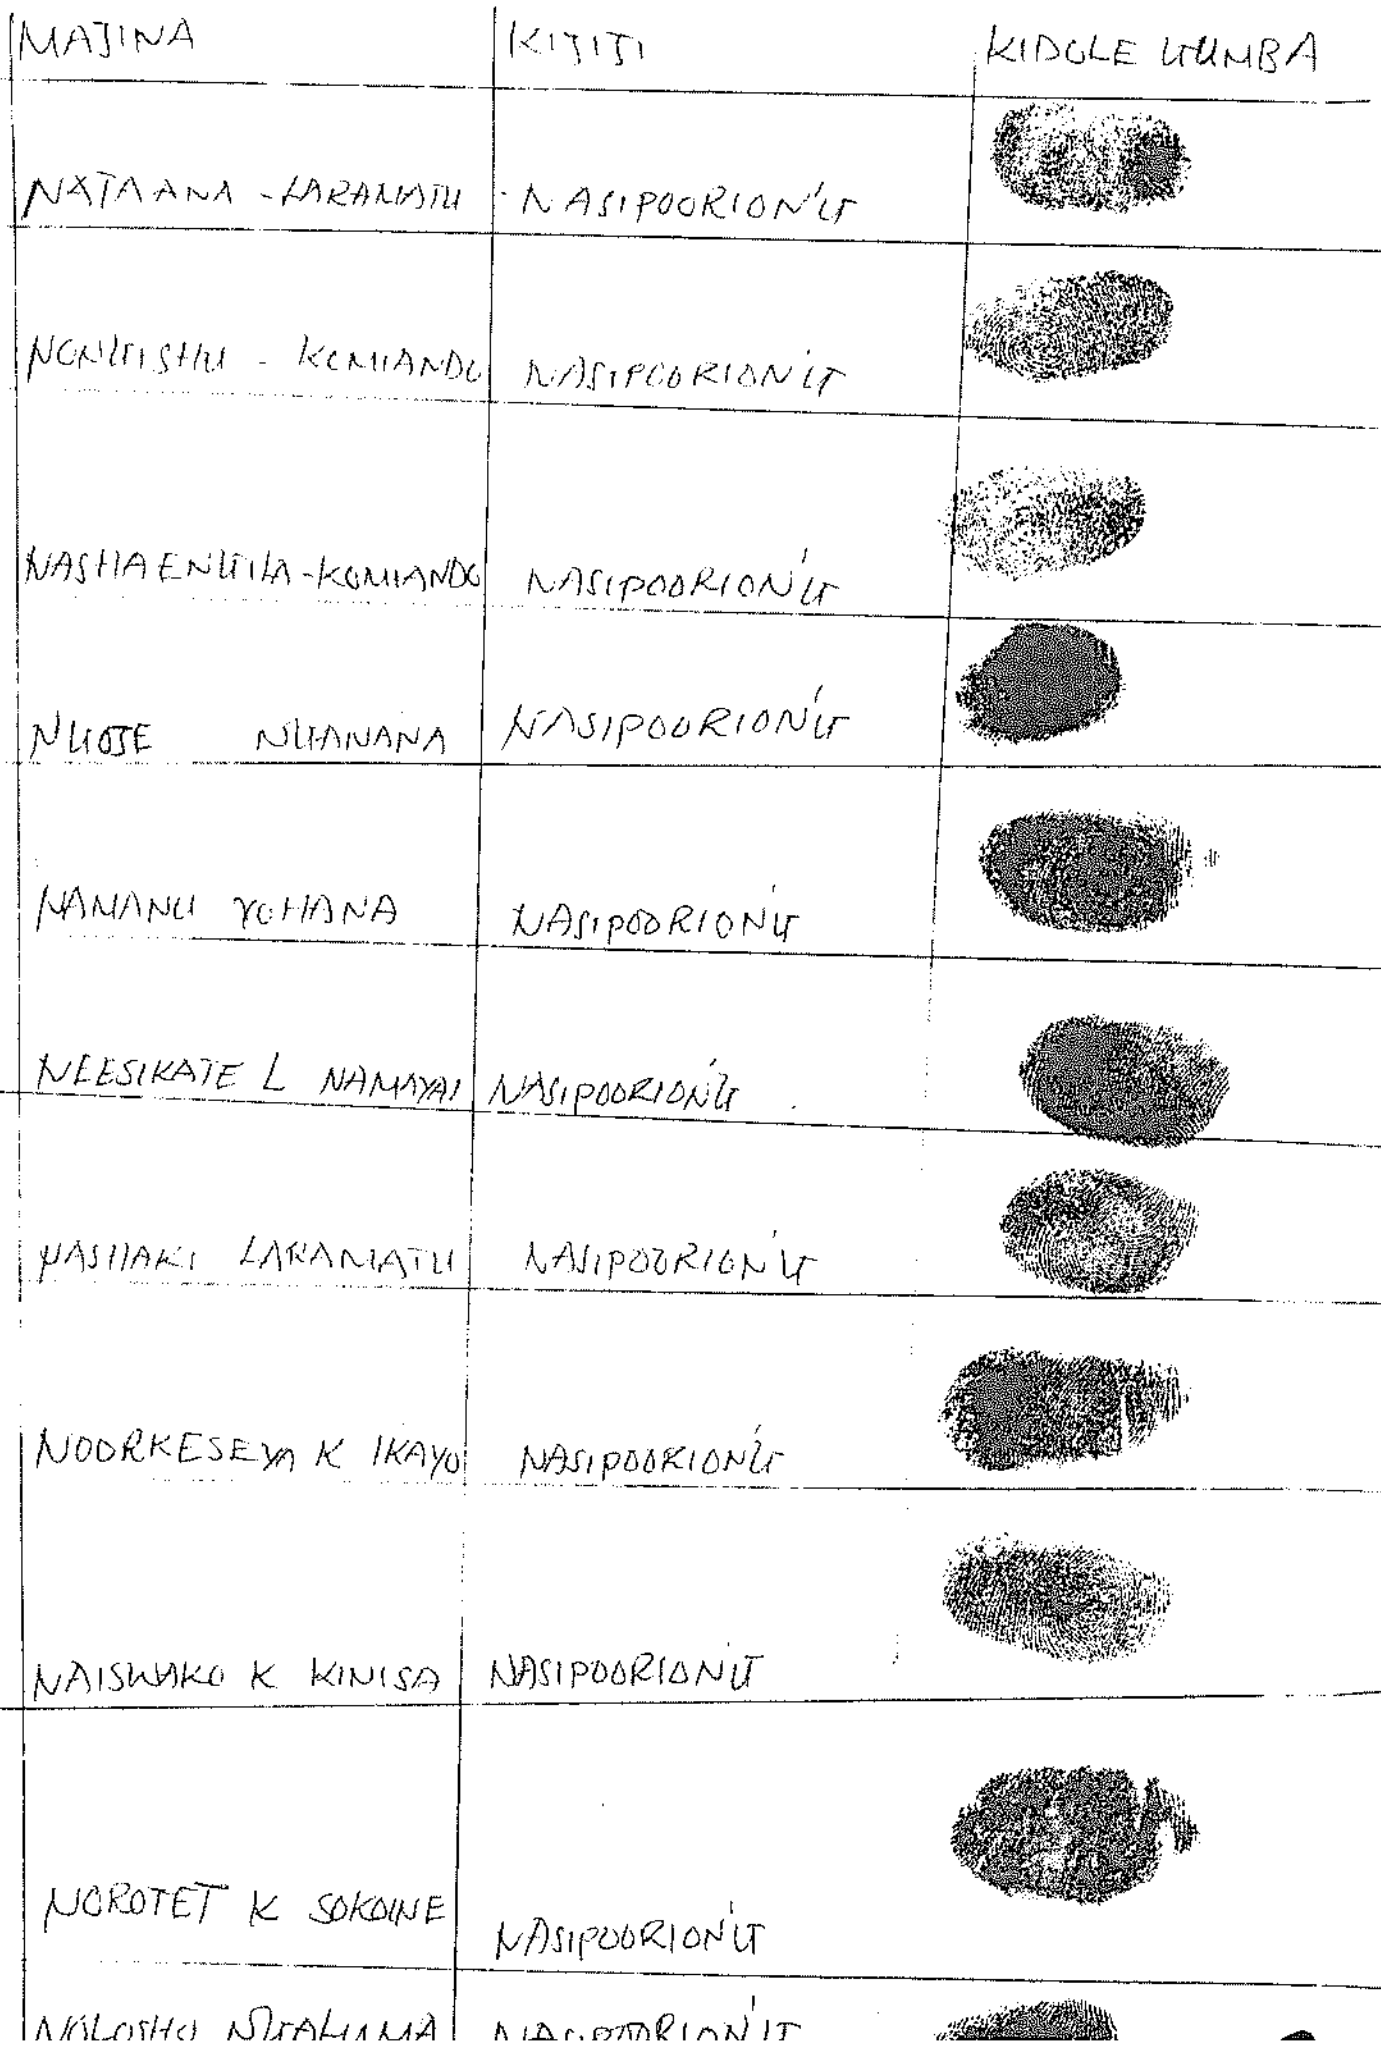 MAJINA KIJIJI KIDOLE GUMBA
NATAANA - LARAMATU NASIPOORIONG'
KOMIANDO NASIPOORIONG'
KOMIANDO NASIPOORIONG'
NASIPOORIONG'
NAMANU YOHANA NASIPOORIONG'
NEESIKATE L NAMAYAI NASIPOORIONG'
NASHAKI LARAMATU NASIPOORIONG'
NOORKESEYA K IKAYO NASIPOORIONG'
K KINISA NASIPOORIONG'
NOROTET K SOKOINE NASIPOORIONG'
NASIPOORIONG'